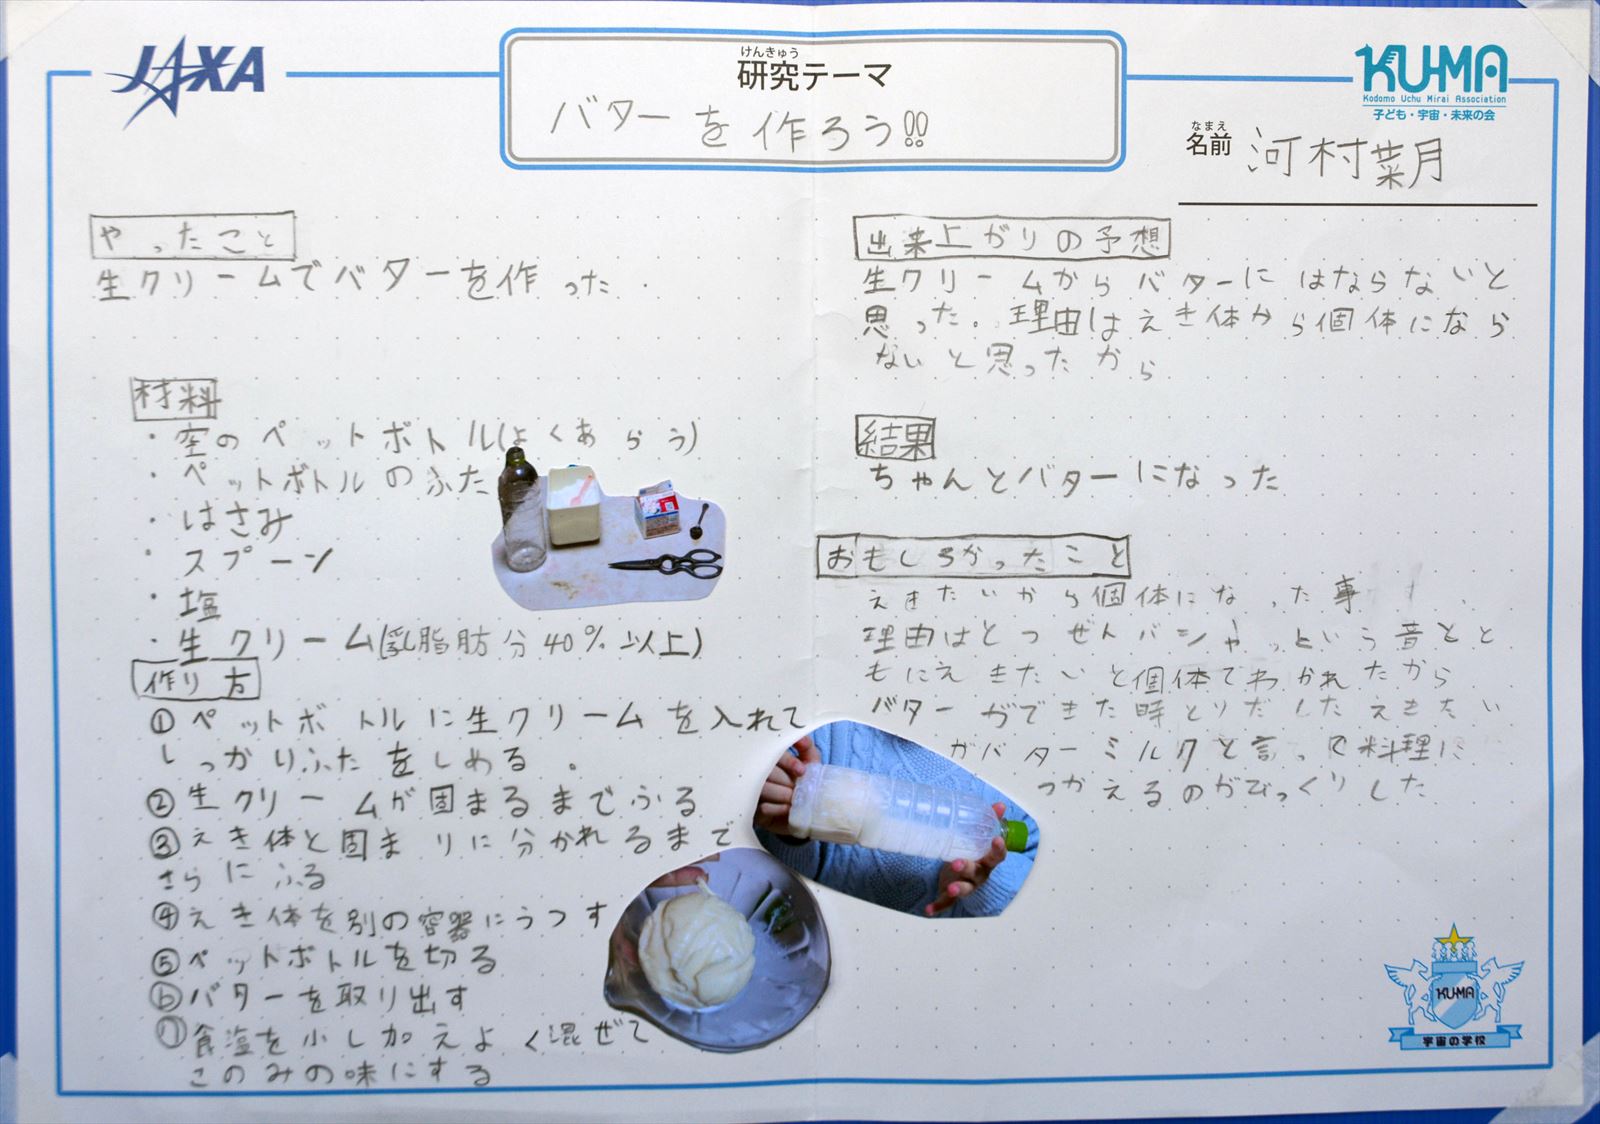 JAXA
けんきゅう
研究テーマ
バターを作ろう!!
KU-MA
Kodomo Uchu Mirai Association
子ども・宇宙・未来の会
なまえ
名前 河村菜月
やったこと
生クリームでバターを作った.
材料
・空のペットボトル(よくあらう)
・ペットボトルのふた
・はさみ
・スプーン
・塩
・生クリーム(乳脂肪分40%以上)
作り方
①ペットボトルに生クリームを入れて
しっかりふたをしめる。
②生クリームが固まるまでふる
③えき体と固まりに分かれるまで
さらにふる
④えき体を別の容器にうつす
⑤ペットボトルを切る
⑥バターを取り出す
⑦食塩を少し加えよく混ぜて
このみの味にする
出来上がりの予想
生クリームからバターにはならないと
思った。理由はえき体から個体になら
ないと思ったから
結果
ちゃんとバターになった
おもしろかったこと
えきたいから個体になった事
理由はとつぜんバシャっという音とと
もにえきたいと個体でわかれたから
バターができた時とりだしたえきたい
がバターミルクと言って料理に
つかえるのがびっくりした
KU-MA
宇宙の学校